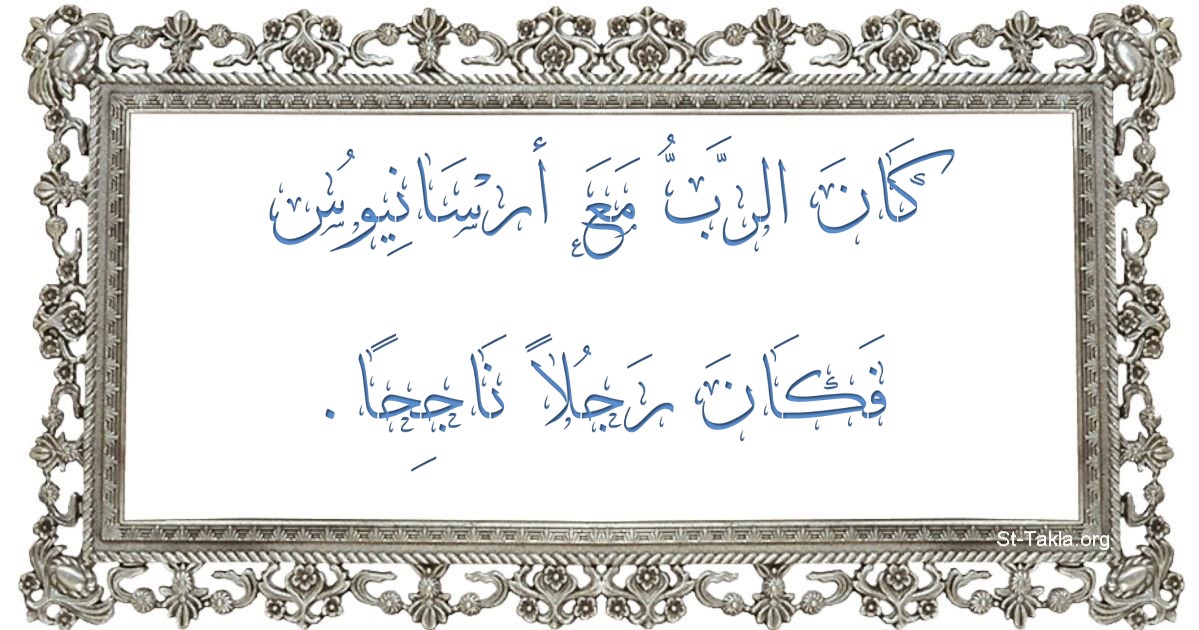 كَانَ الرَّبُّ مَعَ أرْسَانِيوُس
فَكَانَ رَجُلاً نَاجِحًا .
St-Takla.org